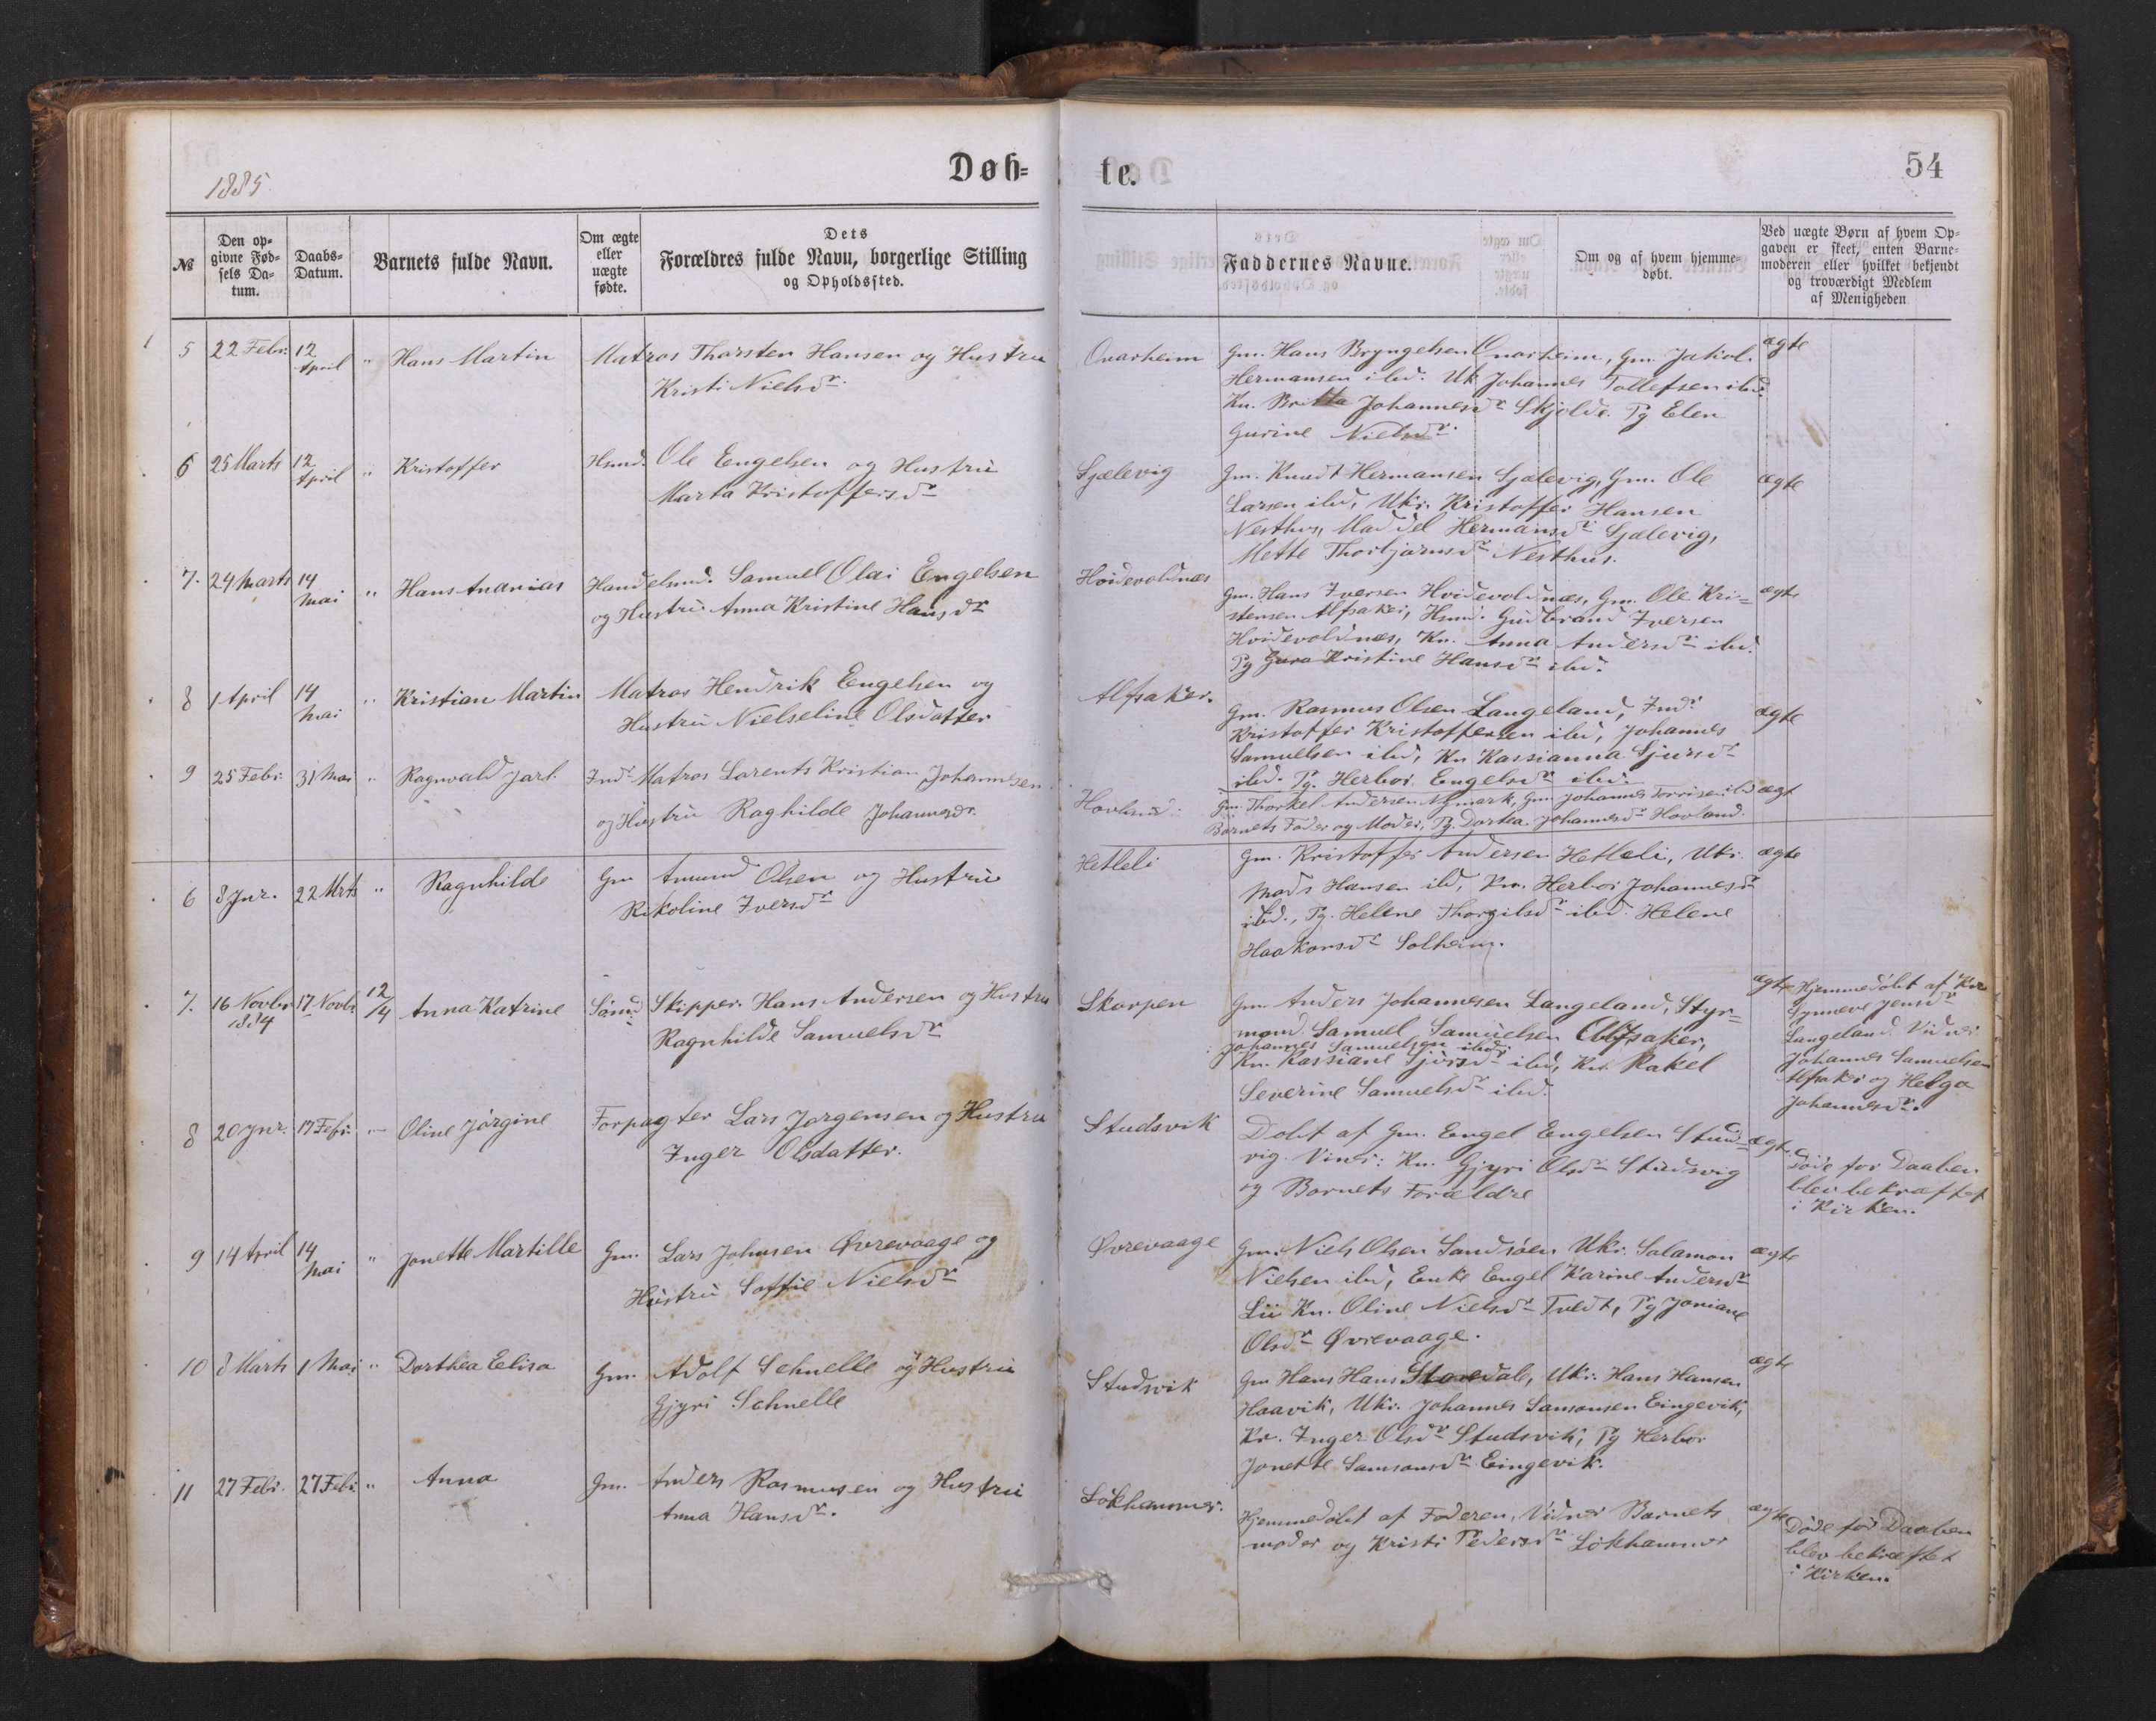 1885.
Døb-
te.
54
№
Den op-
givne Fød-
sels Da-
tum.
Daabs-
Datum.
Barnets fulde Navn.
Om ægte
eller
uægte
fødte.
Dets
Forældres fulde Navn, borgerlige Stilling
og Opholdssted.
Faddernes Navne.
Om og af hvem hjemme-
døbt.
Ved uægte Børn af hvem Op-
gaven er skeet, enten Barne-
moderen eller hvilket bekjendt
og troværdigt Medlem
af Menigheden
5 22 Febr. 12 April " Hans Martin Matros Thorsten Hansen og Hustru
Kristi Nielsdr.
Onarheim Gm. Hans Bryngelsen Onarheim, Gm. Jakob ægte
Hermansen ibd. Uk Johannes Tollefsen ibd.
Kn. Britta Johannesdr Skjolde. Pg Elen
Gurine Nielsdr.
6 25 Marts 12 April " Kristoffer Hsmd. Ole Engelsen og Hustru
Marta Kristoffersdr
Sjælevig Gm. Knudt Hermansen Sjælevig, Gm. Ole ægte
Larsen ibd, Ukr. Kristoffer Hansen
Nesthus, Hermansdr Sjælevig,
Mette Thorbjørnsdr Nesthus.
7. 24 Marts 14 Mai " Hans Ananias Handelsmd. Samuel Olai Engelsen
og Hustru Anna Kristine Hansdr
Hvidevoldnæs Gm. Hans Iversen Hvidevoldnæs, Gm. Ole Kri= ægte
stensen Alfsaker, Hsmd. Gudbrand Iversen
Hvidevoldnæs, Kn. Anna Andersdr ibd.
Pg Guro Kristine Hansdr ibd.
8 1 April 14 Mai " Kristian Martin Matros Hendrik Engelsen og
Hustru Nielseline Olsdatter
Alfsaker. Gm. Rasmus Olsen Langeland, Indr ægte
Kristoffer Kristoffersen ibd, Johannes
Samuelsen ibd, Kn Kassianna Sjursdr
ibd. Pg. Herbor Engelsdr ibd.
9 25 Febr. 31 Mai " Ragnvald Jarl. Indr Matros Lorents Kristian Johannesen
og Hustru Raghilde Johannesdr.
Hovland. Gm. Thorkel Andersen Nymark, Gm Johannes Torrisen ibd ægt
Barnets Fader og Moder, Pg. Dortea Johannesdr Hovland.
6 8 Jnr. 22 Mrts " Ragnhilde Gm Amund Olsen og Hustru
Rikoline Iversdr
Hetleli Gm. Kristoffer Andersen Hetleli, Ukr. ægte
Mads Hansen ibd, Kn. Herbor Johannesdr
ibd., Pg. Helene Thorgilsdr ibd. Helene
Haakonsdr Solheim.
7. 16 Novbr 1884 17 Novbr 12/4 Anna Katrine Skipper. Hans Andersen og Hustru
Ragnhilde Samuelsdr
Skorpen Gm. Anders Johannesen Langeland, Styr= ægte
mand. Samuel Samuelsen Alfsaker,
Johannes Samuelsen ibd.
Kn. Kassiane Sjursdr ibd, Kn. Rakel
Severine Samuelsdr ibd.
Hjemmedøbt af Kn
Synneve Jensdr
Langeland. Vidner
Johannes Samuelsen
Alfsaker og Helga
Johannesdr.
8 20 Jnr. 17 Febr. " Oline Jørgine Forpagter Lars Jørgensen og Hustru
Inger Olsdatter.
Studsvik Døbt af Gm. Engel Engelsen Studs= ægte
vig. Vinds: Kn. Gjyri Olsdr Studsvig
og Barnets Forældre
Døde før Daaben
blev bekræftet
i Kirken.
9 14 April 14 Mai " Jonette Martille Gm. Lars Johnsen Øvrevaage og
Hustru Soffie Nielsdr
Øvrevaage Gm. Niels Olsen Sandsøen Ukr. Salamon ægte
Nielsen ibd, Enke Engel Karine Andersdr
Lii Kn. Oline Nielsdr Tvedt, Pg Joniane
Olsdr Øvrevaage.
10 8 Marts 1 Mai " Dorthea Elisa Gm. Adolf Schnelle og Hustru
Gjyri Schnelle
Studsvik Gm Hans Hans Storedale, Ukr. Hans Hansen ægte
Haavik, Ukr. Johannes Samsonsen Eingevik,
Kn. Inger Olsdr Studsvik, Pg Herbor
Jonette Samsonsdr Eingevik.
11 27 Febr. 27 Febr " Anna Gm. Anders Rasmusen og Hustru
Anna Hansdr.
Løkhammer. Hjemmedøbt af Faderen, Vidner Barnets ægte
moder og Kristi Pedersdr Løkhammer
Døde før Daaben
blev bekræftet
i Kirken.